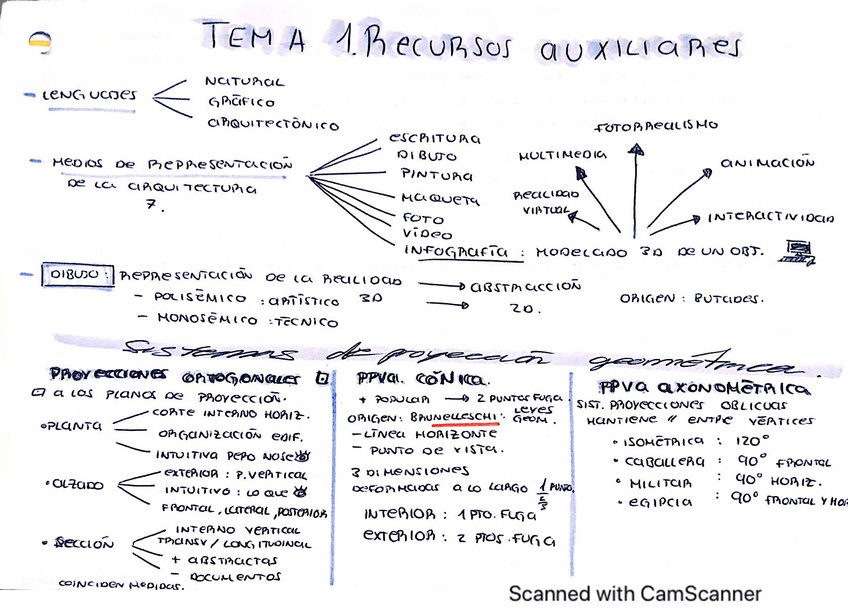 TEMA 1. RECURSOS AUXILIARES
- LENGUAJES
NATURAL
GRÁFICO
ARQUITECTÓNICO
- MEDIOS DE REPRESENTACIÓN
DE LA ARQUITECTURA
7.
ESCRITURA
DIBUJO
PINTURA
MAQUETA
FOTO
VÍDEO
INFOGRAFÍA : MODELADO 3D DE UN OBJ.
FOTORREALISMO
MULTIMEDIA
ANIMACIÓN
REALIDAD
VIRTUAL
INTERACTIVIDAD
- DIBUJO : REPRESENTACIÓN DE LA REALIDAD → ABSTRACCIÓN
- POLISÉMICO : ARTÍSTICO 3D → 2D.
- MONOSÉMICO : TÉCNICO
ORIGEN : BUTADES.
Sistemas de proyección geométrica.
PROYECCIONES ORTOGONALES
A LOS PLANOS DE PROYECCIÓN.
• PLANTA
CORTE INTERNO HORIZ.
ORGANIZACIÓN EDIF.
INTUITIVA PERO NO SE
• ALZADO
EXTERIOR : P. VERTICAL
INTUITIVO : LO QUE
FRONTAL, LATERAL, POSTERIOR
• SECCIÓN
INTERNO VERTICAL
TRANSV / LONGITUDINAL
+ ABSTRACTAS
- DOCUMENTOS
COINCIDEN MEDIDAS.
PPVA. CÓNICA.
+ POPULAR → 2 PUNTOS FUGA.
ORIGEN: BRUNELLESCHI : LEYES GEOM.
- LÍNEA HORIZONTE
- PUNTO DE VISTA.
3 DIMENSIONES
DEFORMADAS A LO LARGO 1 PUNTO.
INTERIOR : 1 PTO. FUGA
EXTERIOR : 2 PTOS. FUGA
PPVA AXONOMÉTRICA
SIST. PROYECCIONES OBLICUAS
MANTIENE // ENTRE VÉRTICES
• ISOMÉTRICA : 120°
• CABALLERA : 90° FRONTAL
• MILITAR : 90° HORIZ.
• EGIPCIA : 90° FRONTAL Y HOR
Scanned with CamScanner